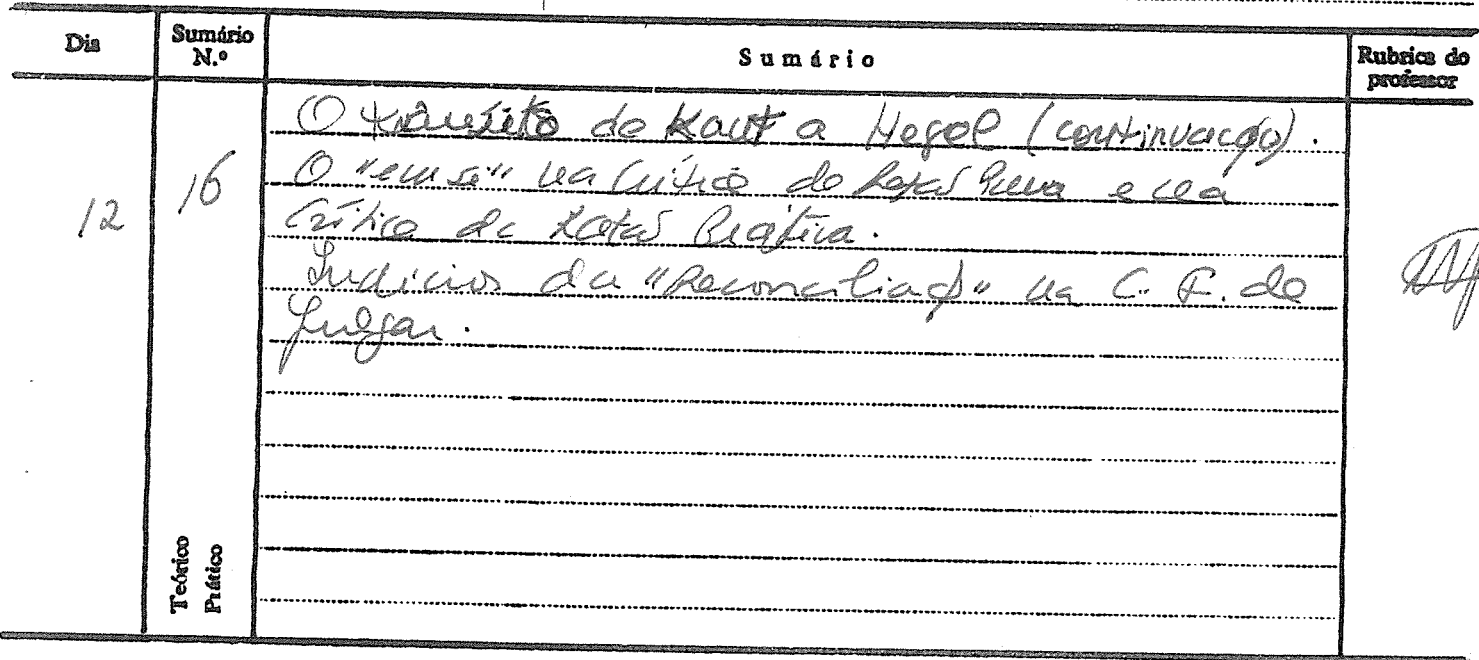 Dia
Sumário N.º
Sumário
Rubrica do professor
12
16
O trânsito de Kant a Hegel (continuação).
O "em si" na Crítica da Razão Pura e na
Crítica da Razão Prática.
Indícios da "Reconciliação" na C. F. de
Julgar.
Teórico
Prático